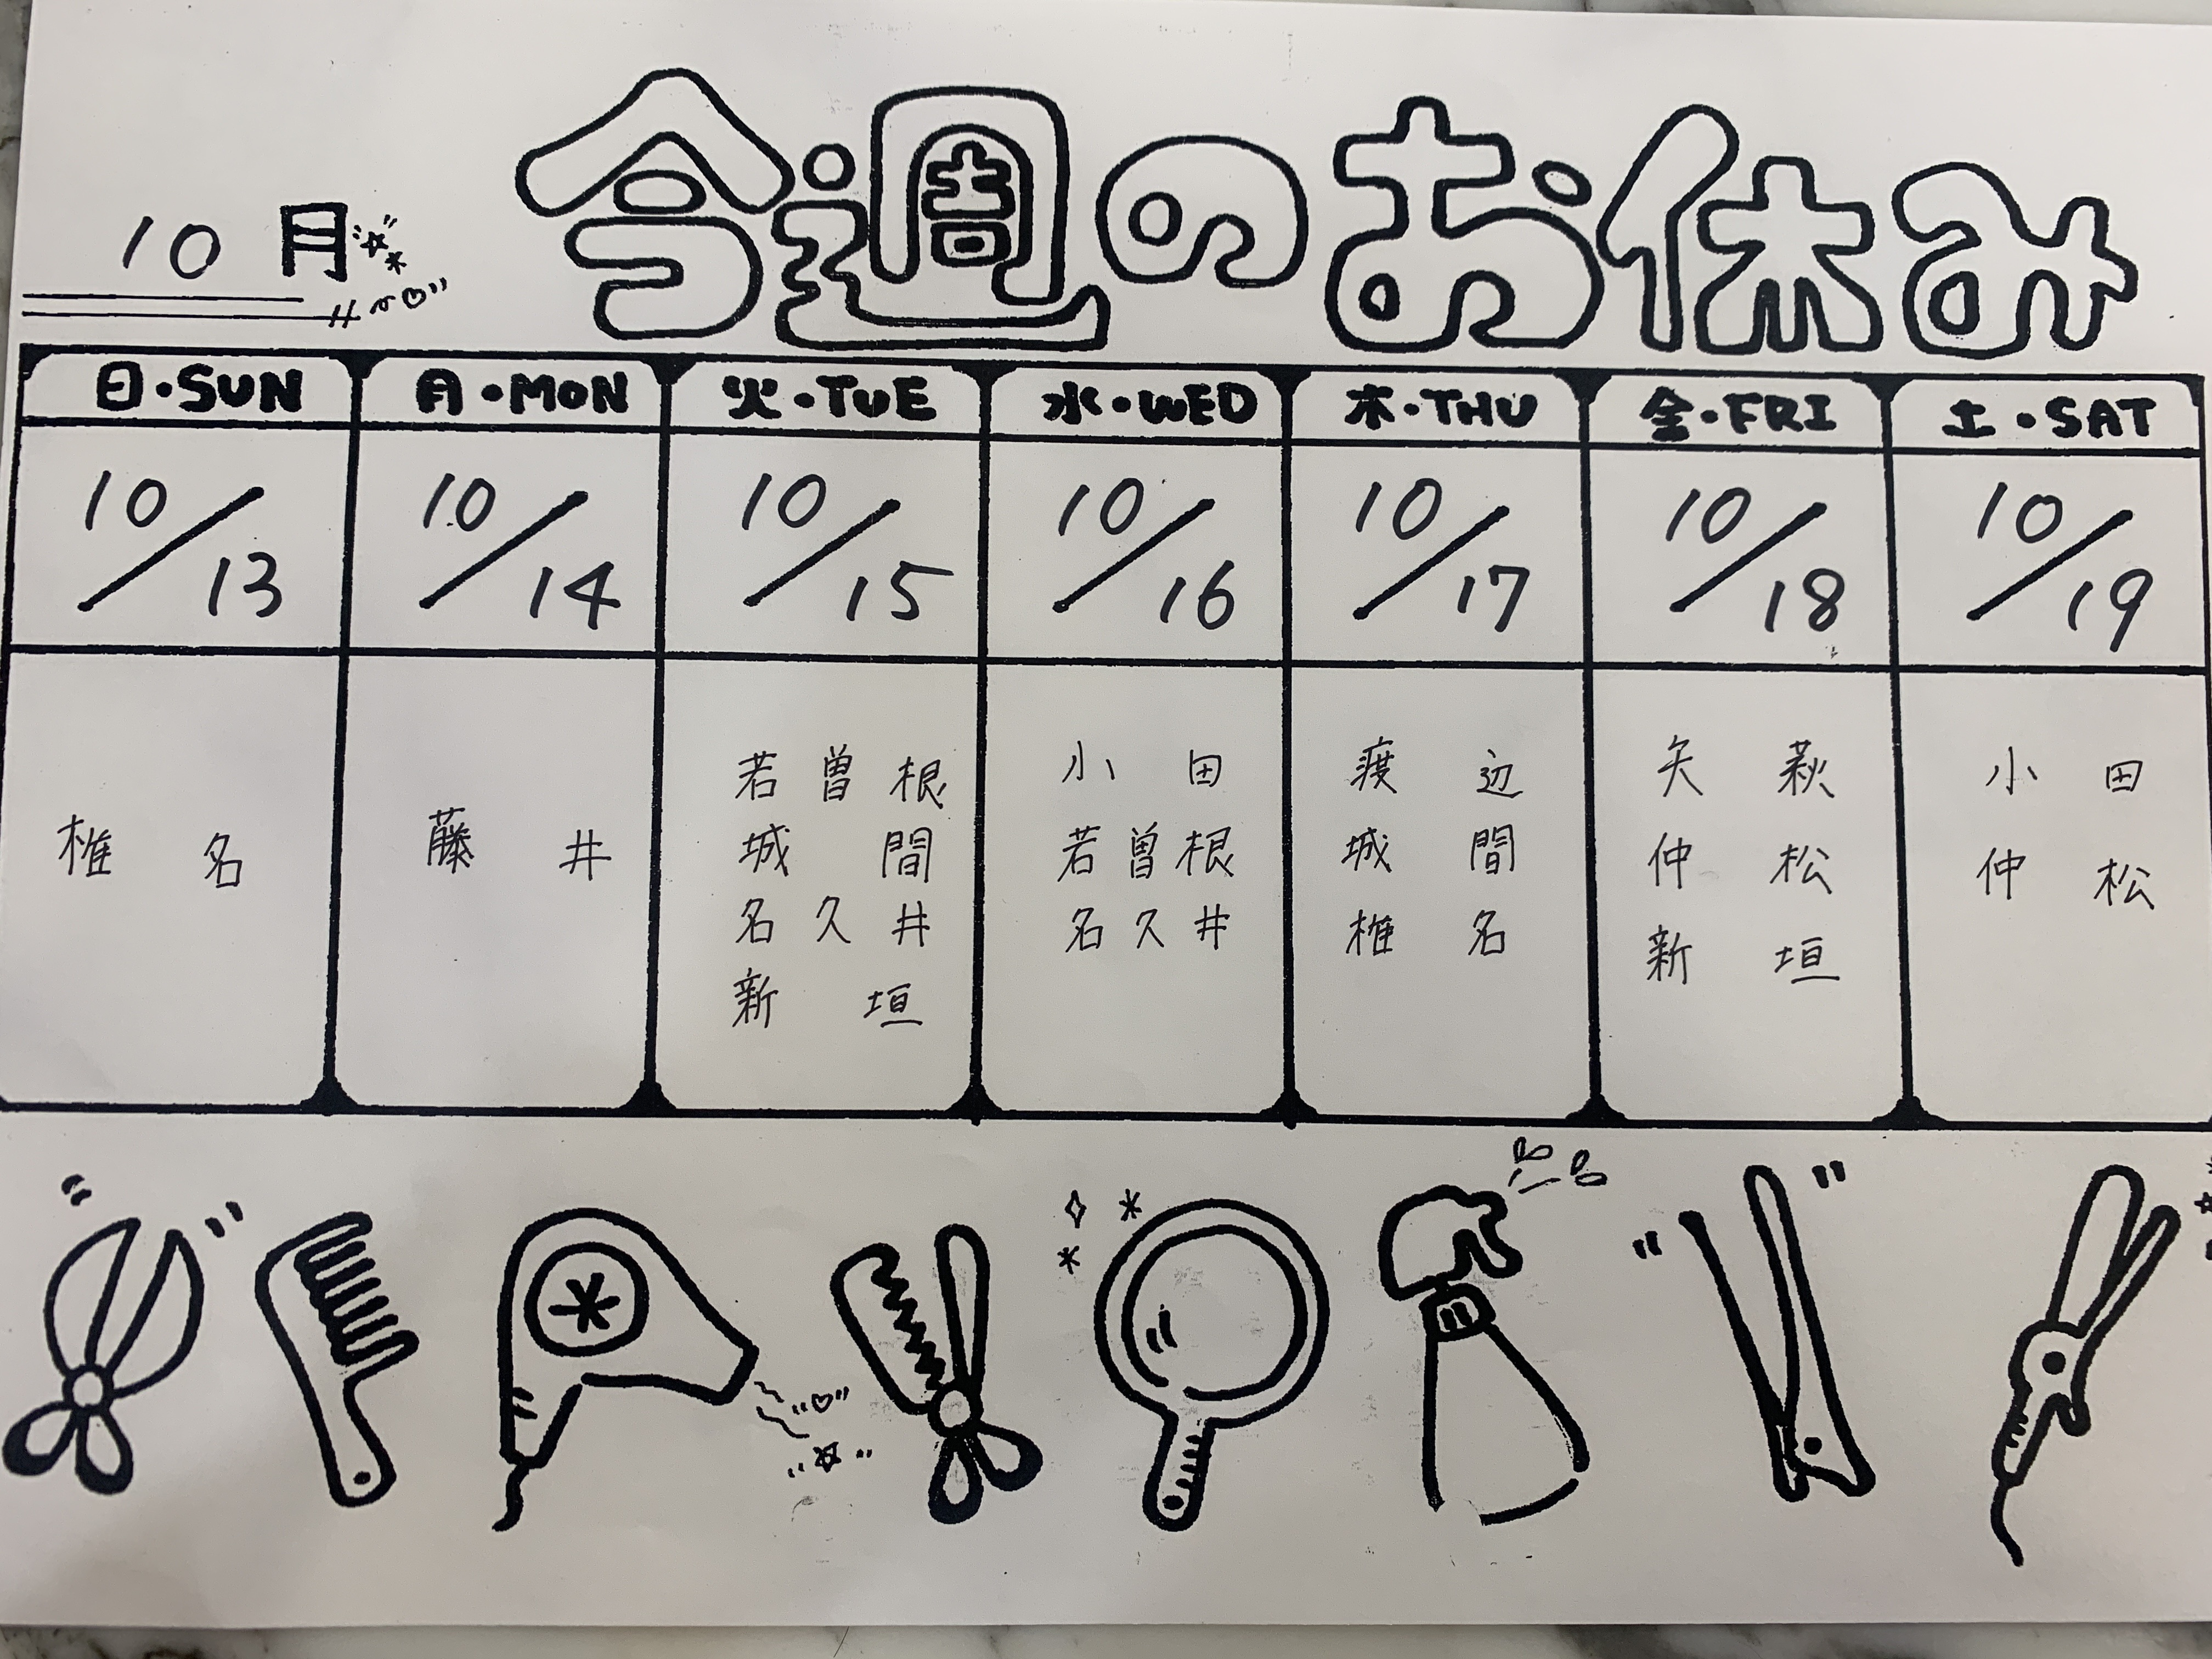 10月
今週のお休み
日・SUN 月・MON 火・TUE 水・WED 木・THU 金・FRI 土・SAT
10/13 10/14 10/15 10/16 10/17 10/18 10/19
椎名
藤井
若曽根
城間
名久井
新垣
小田
若曽根
名久井
渡辺
城間
椎名
矢萩
仲松
新垣
小田
仲松